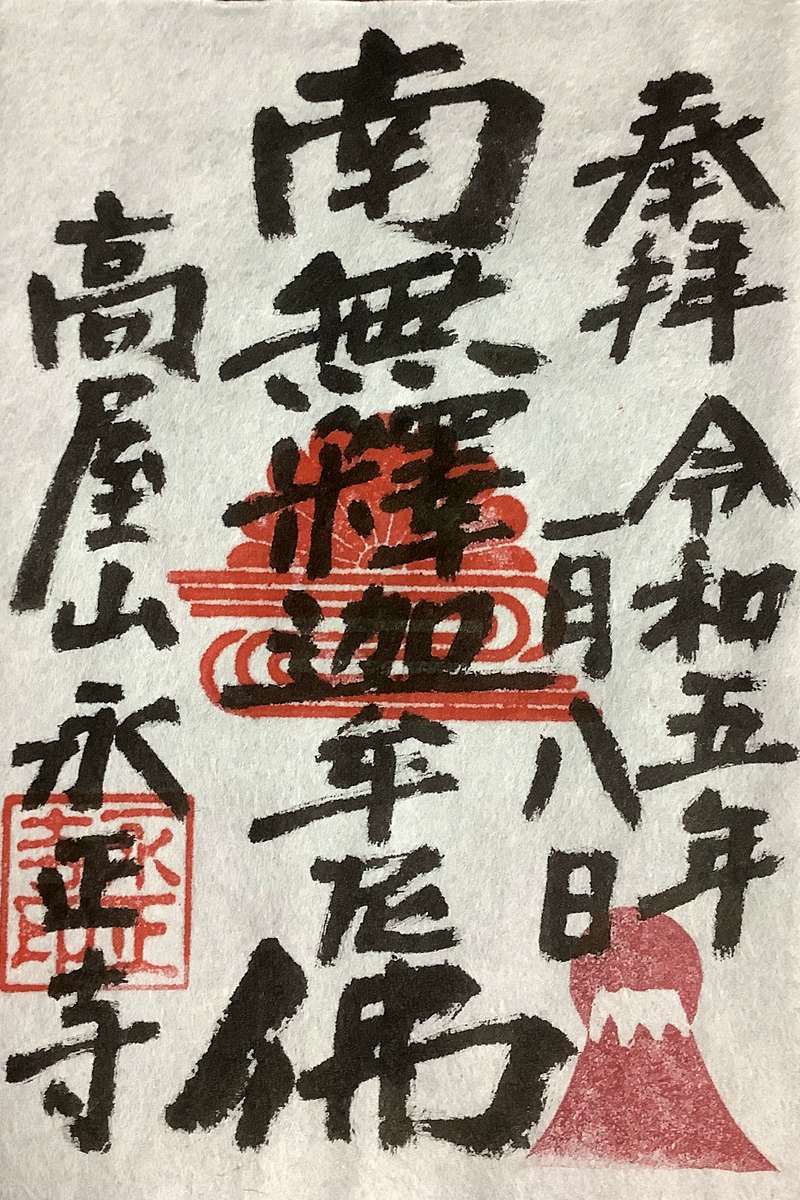 奉拝
令和五年
一月八日
南無釋迦牟尼佛
高屋山永正寺
永正
寺印